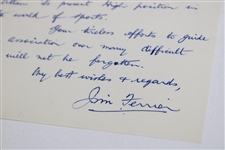 to present high position in
world of sports.
Your tireless efforts to guide
association over many difficult
will not be forgotten.
My best wishes & regards,
Jim Ferrier